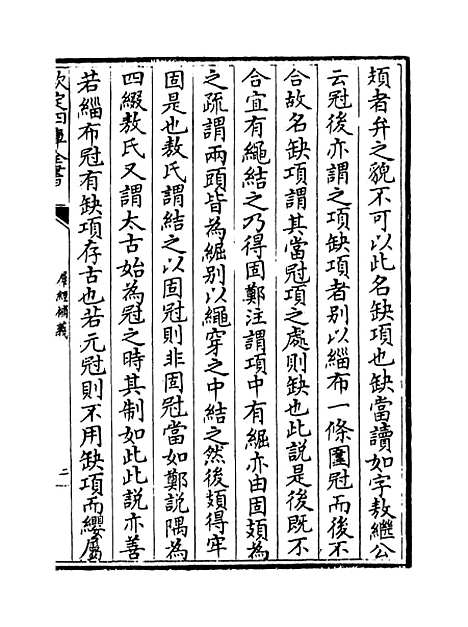 頍者弁之貌不可以此名缺項也缺當讀如字敖繼公
云冠後亦謂之項缺項者别以緇布一條圍冠而後不
合故名缺項謂其當冠項之處則缺也此說是後既不
合宜有繩結之乃得固鄭注謂項中有䋄亦由固頍為
之疏謂兩頭皆為䋄别以繩穿之中結之然後頍得牢
固是也敖氏謂結之以固冠則非固冠當如鄭說隅為
四綴敖氏又謂太古始為冠之時其制如此此說亦善
若緇布冠有缺項存古也若元冠則不用缺項而纓屬
欽定四庫全書
群經補義
二